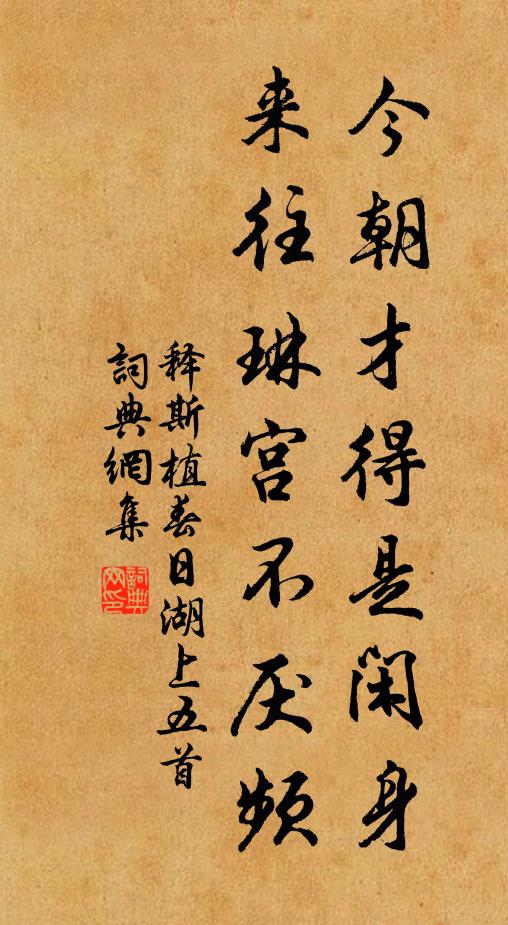 今朝才得是闲身
来往琳宫不厌频
释斯植春日湖上五首
詞典網集
詞典网印